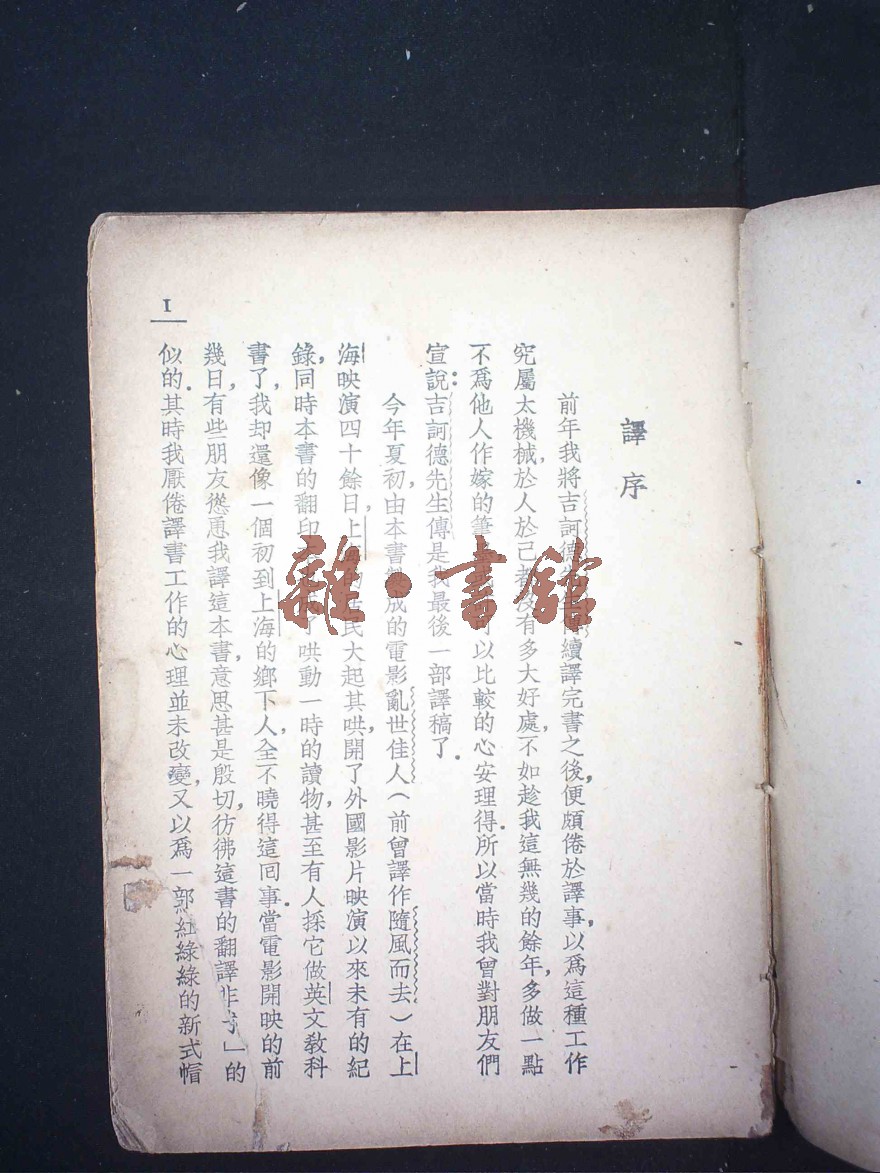 譯序
前年我將吉訶德續譯完書之後，便頗倦於譯事，以爲這種工作
究屬太機械，於人於己都沒有多大好處，不如趁我這無幾的餘年，多做一點
不爲他人作嫁的筆可以比較的心安理得．所以當時我曾對朋友們
宣說：吉訶德先生傳是我最後一部譯稿了．
今年夏初，由本書製成的電影亂世佳人（前曾譯作隨風而去）在上
海映演四十餘日，上海的居民大起其哄，開了外國影片映演以來未有的紀
錄，同時本書的翻印了哄動一時的讀物，甚至有人採它做英文敎科
書了，我却還像一個初到上海的鄉下人，全不曉得這回事．當電影開映的前
幾日，有些朋友慫恿我譯這本書，意思甚是殷切，彷彿這書的翻譯非」的
似的．其時我厭倦譯書工作的心理並未改變，又以爲一部紅綠綠的新式帽
1
雜·書館